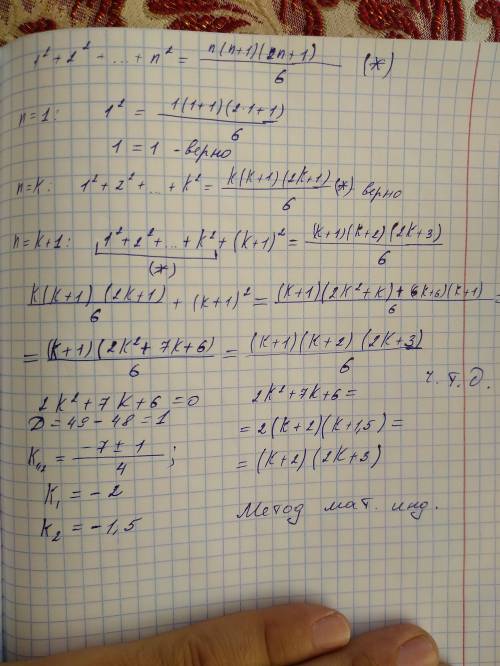 1² + 2² + ... + n² = n(n+1)(2n+1)/6 (*)
n=1: 1² = 1(1+1)(2·1+1)/6
1 = 1 - верно
n=k: 1² + 2² + ... + k² = k(k+1)(2k+1)/6 (*) верно
n=k+1: 1² + 2² + ... + k² + (k+1)² = (k+1)(k+2)(2k+3)/6
(*)
k(k+1)(2k+1)/6 + (k+1)² = (k+1)(2k²+k)+6k+6)(k+1)/6 =
= (k+1)(2k²+7k+6)/6 = (k+1)(k+2)(2k+3)/6
ч.т.д.
2k²+7k+6=0
D=49-48=1
k₁,₂ = -7±1/4;
k₁ = -2
k₂ = -1,5
2k²+7k+6=
=2(k+2)(k+1,5)=
=(k+2)(2k+3)
Метод мат. инд.